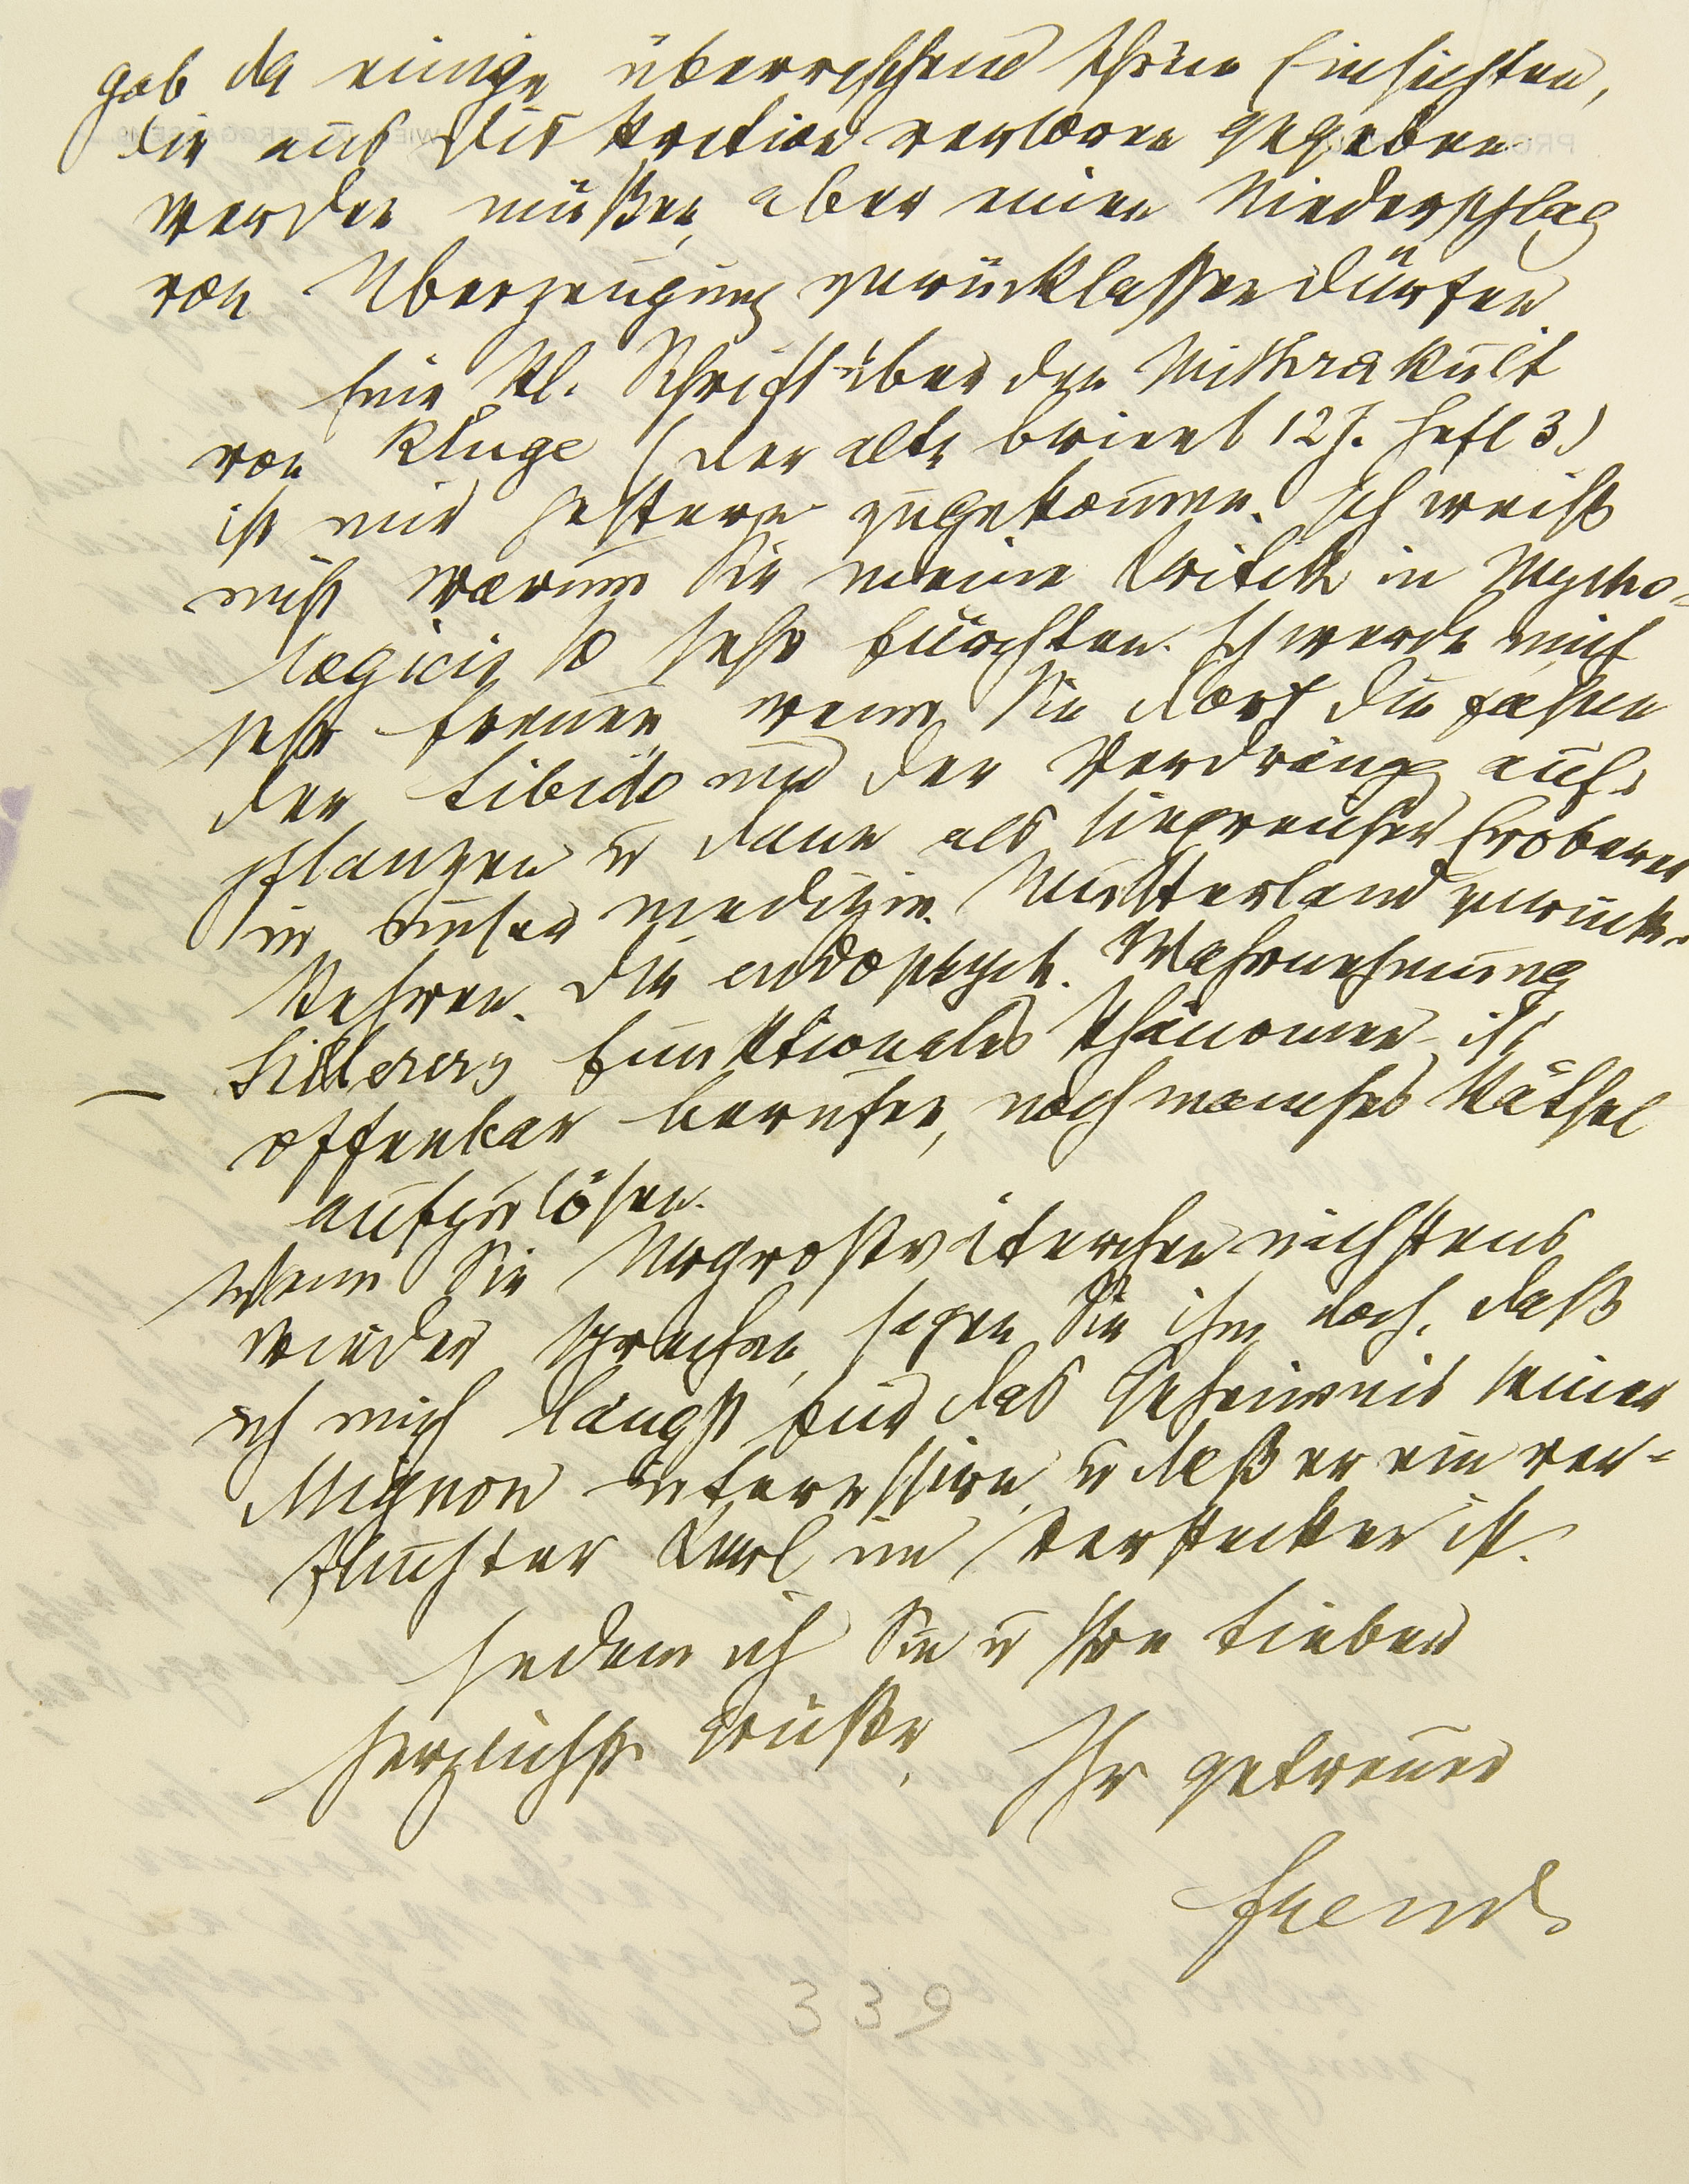 gab da einige überraschend schöne Einsichten,
die aus Diskretion verloren gegeben
werden müßen, aber einen Niederschlag
von Überzeugung zurücklassen dürften
Eine kl. Schrift über den Mithrakult
von Kluge (Der alte Orient 12 J. Heft 3)
ist mir gestern zugekommen. Ich weiß
nicht warum Sie meine Kritik in Mytho=
logicis so sehr fürchten. Ich werde mich
sehr freuen, wenn Sie dort die Fahne
der Libido und der Verdrängg auf-
pflanzen u dann als siegreicher Eroberer
in unser medizin. Mutterland zurück-
kehren. Die endopsych. Wahrnehmung
Silberers funktionales Phänomen ist
offenbar berufen, noch manches Räthsel
aufzulösen.
Wenn Sie Urgroßväterchen nächstens
wieder sprechen, sagen Sie ihm doch, daß
ich mich längst für das Geheimnis seiner
Mignon interessire, u daß er ein ver=
fluchter Kerl im Verstecken ist.
Indem ich Sie u Ihre Lieben
herzlichst grüße,
Ihr getreuer
Freud
339